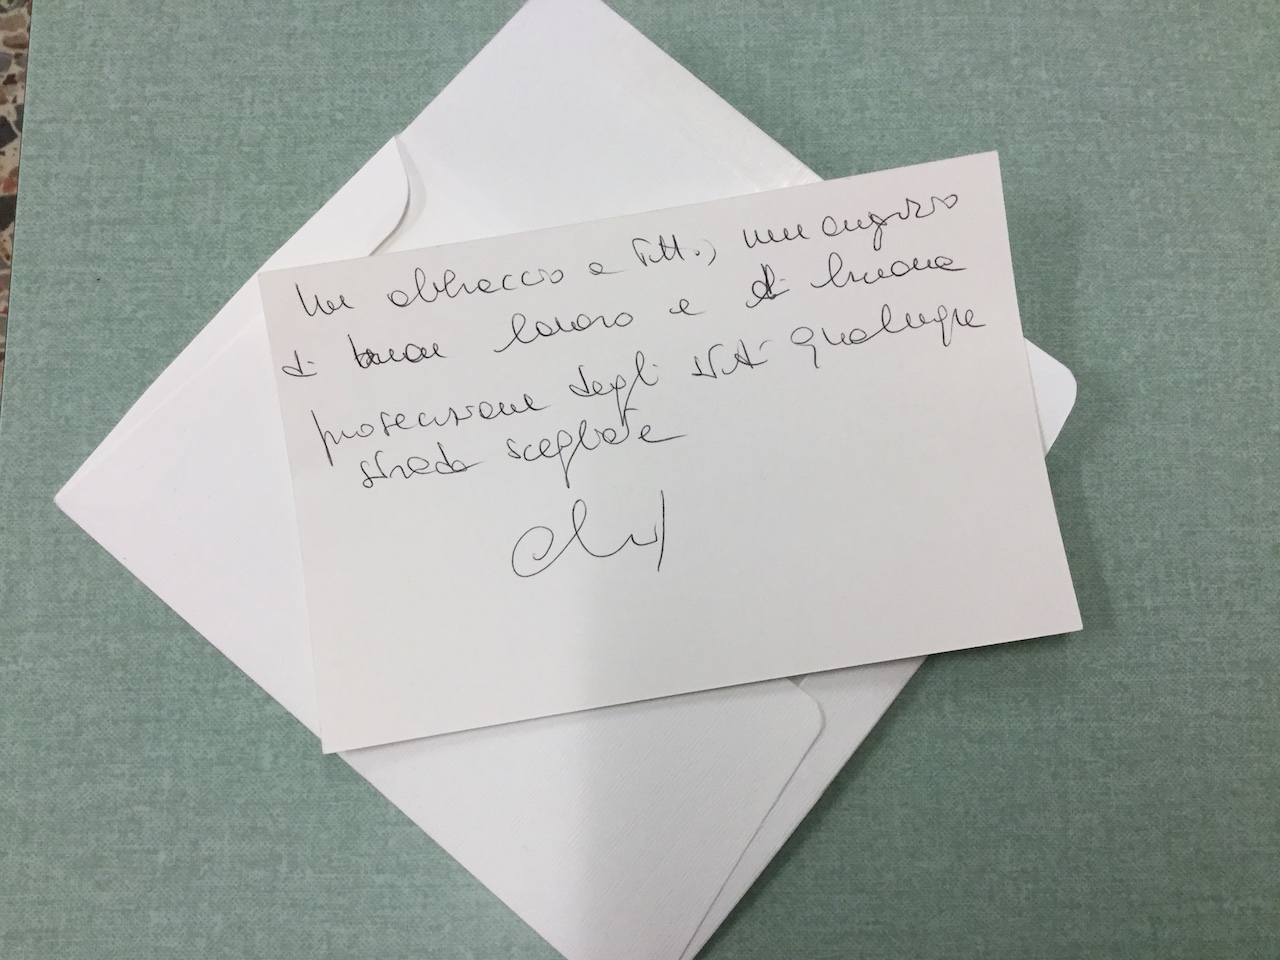 Un abbraccio a tutti, un augurio
di buon lavoro e di buona
prosecuzione degli studi qualunque
strada scegliate